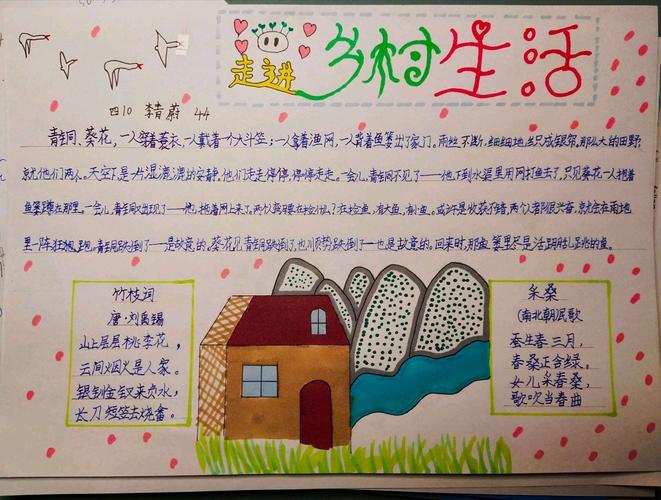 走进乡村生活
四10 李青蔚 44
青铜、葵花，一人穿着蓑衣，一人戴着一个大斗笠；一人拿着渔网，一人背着鱼篓出了家门。雨丝不断，细细地丝织成银帘，那么大的田野，
就他们两个人。天空下是一片湿漉漉的安静，他们走走停停，停停走走。一会儿，青铜不见了——他下到水渠里用网打鱼去了，只见葵花一人抱着
鱼篓蹲在那里。一会儿，青铜又出现了——他拖着网上来了，两个人
在捡鱼，有大鱼，有小鱼。或许是收获不错，两个人都很兴奋，就会在雨地
里一阵狂跑。青铜跌倒了——是故意的，葵花见青铜跌倒了，也顺势跌倒了——也是故意的。回来时，那鱼篓里尽是活蹦乱跳的鱼。
竹枝词
唐·刘禹锡
山上层层桃李花，
云间烟火是人家。
银钏金钗来负水，
长刀短笠去烧畲。
采桑
(南北朝)民歌
蚕生春三月，
春桑正含绿，
女儿采春桑，
歌吹当春曲